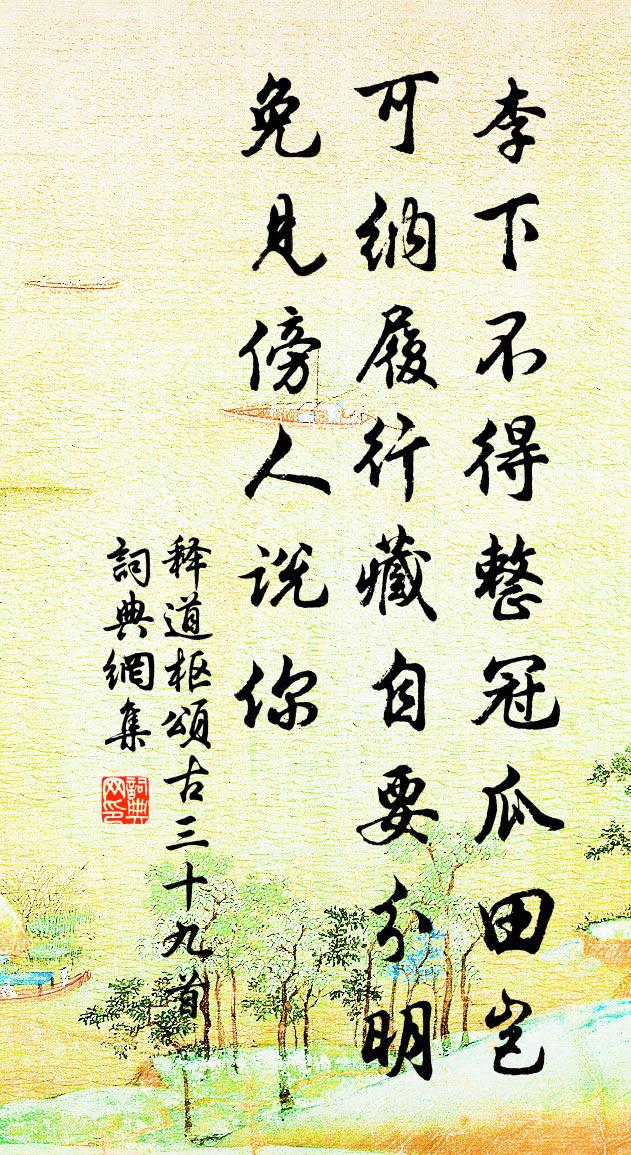 李下不得整冠瓜田岂
可纳履行藏自要分明
免见傍人说你
释道枢颂古三十九首
詞典網集
詞典
网印